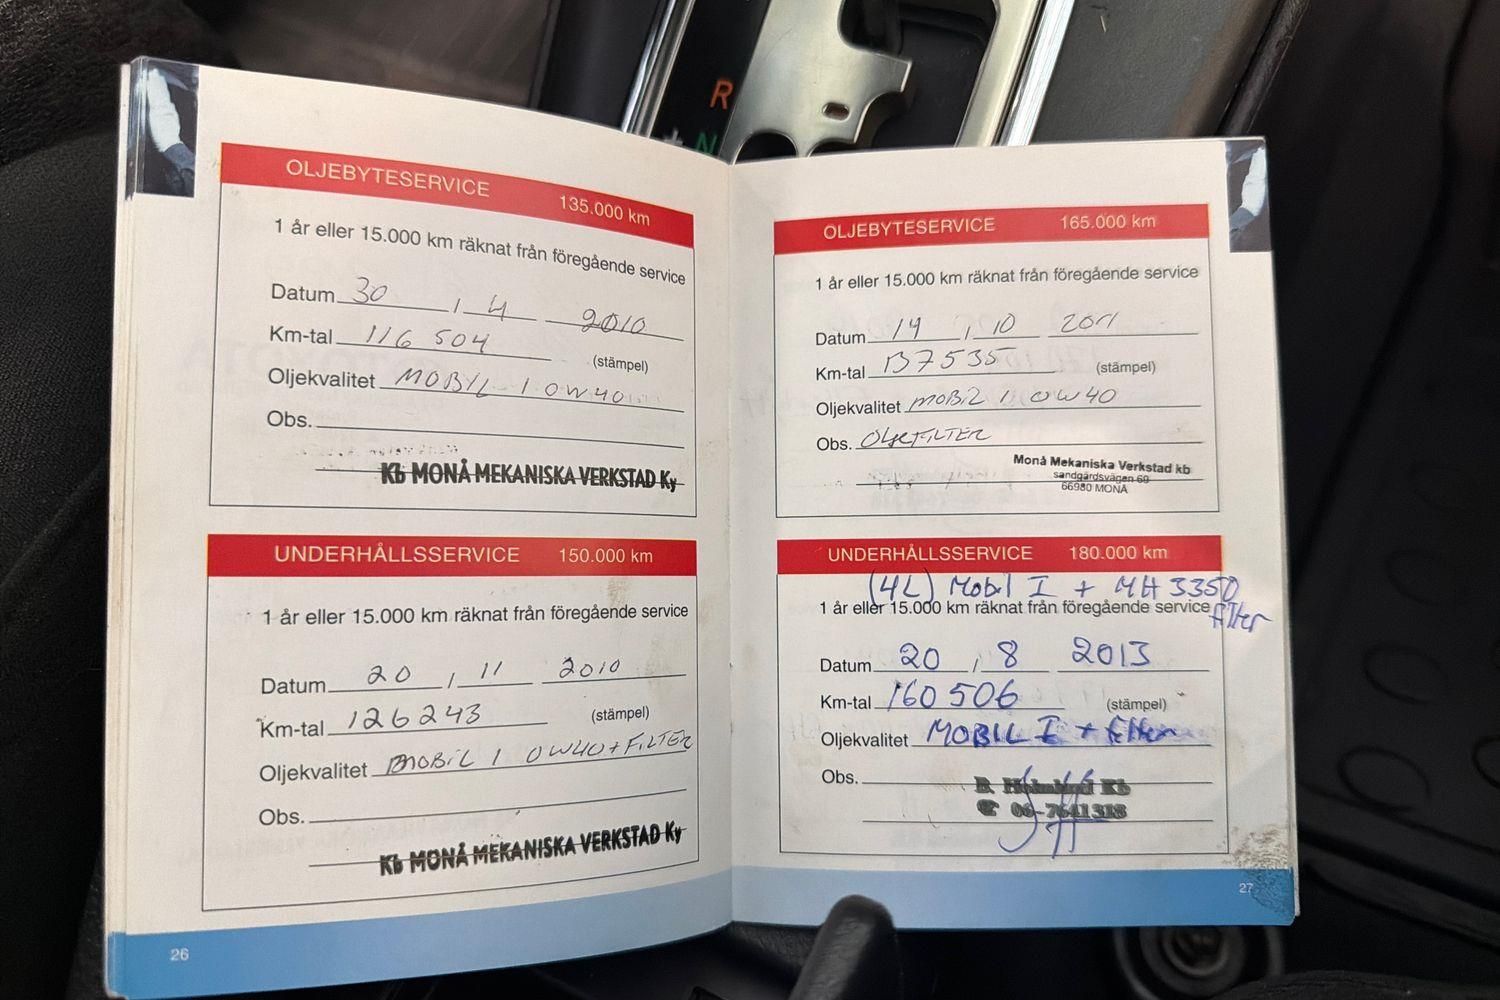 R
N
OLJEBYTESERVICE 135.000 km
1 år eller 15.000 km räknat från föregående service
Datum 30 , 4 2010
Km-tal 116 504 (stämpel)
Oljekvalitet MOBIL 1 0W40
Obs.
Kb MONÅ MEKANISKA VERKSTAD Ky
UNDERHÅLLSSERVICE 150.000 km
1 år eller 15.000 km räknat från föregående service
Datum 20 , 11 2010
Km-tal 126243 (stämpel)
Oljekvalitet MOBIL 1 0W40+FILTER
Obs.
Kb MONÅ MEKANISKA VERKSTAD Ky
26
OLJEBYTESERVICE 165.000 km
1 år eller 15.000 km räknat från föregående service
Datum 14 , 10 2011
Km-tal 137535 (stämpel)
Oljekvalitet MOBIL 1 0W40
Obs. OLJEFILTER
Monå Mekaniska Verkstad kb
sandgårdsvägen 69
66980 MONÅ
UNDERHÅLLSSERVICE 180.000 km
(4L) Mobil I + MH 3350
filter
1 år eller 15.000 km räknat från föregående service
Datum 20 , 8 2013
Km-tal 160506 (stämpel)
Oljekvalitet MOBIL I + filter
Obs.
B. Kb
☎ 06-7641318
27